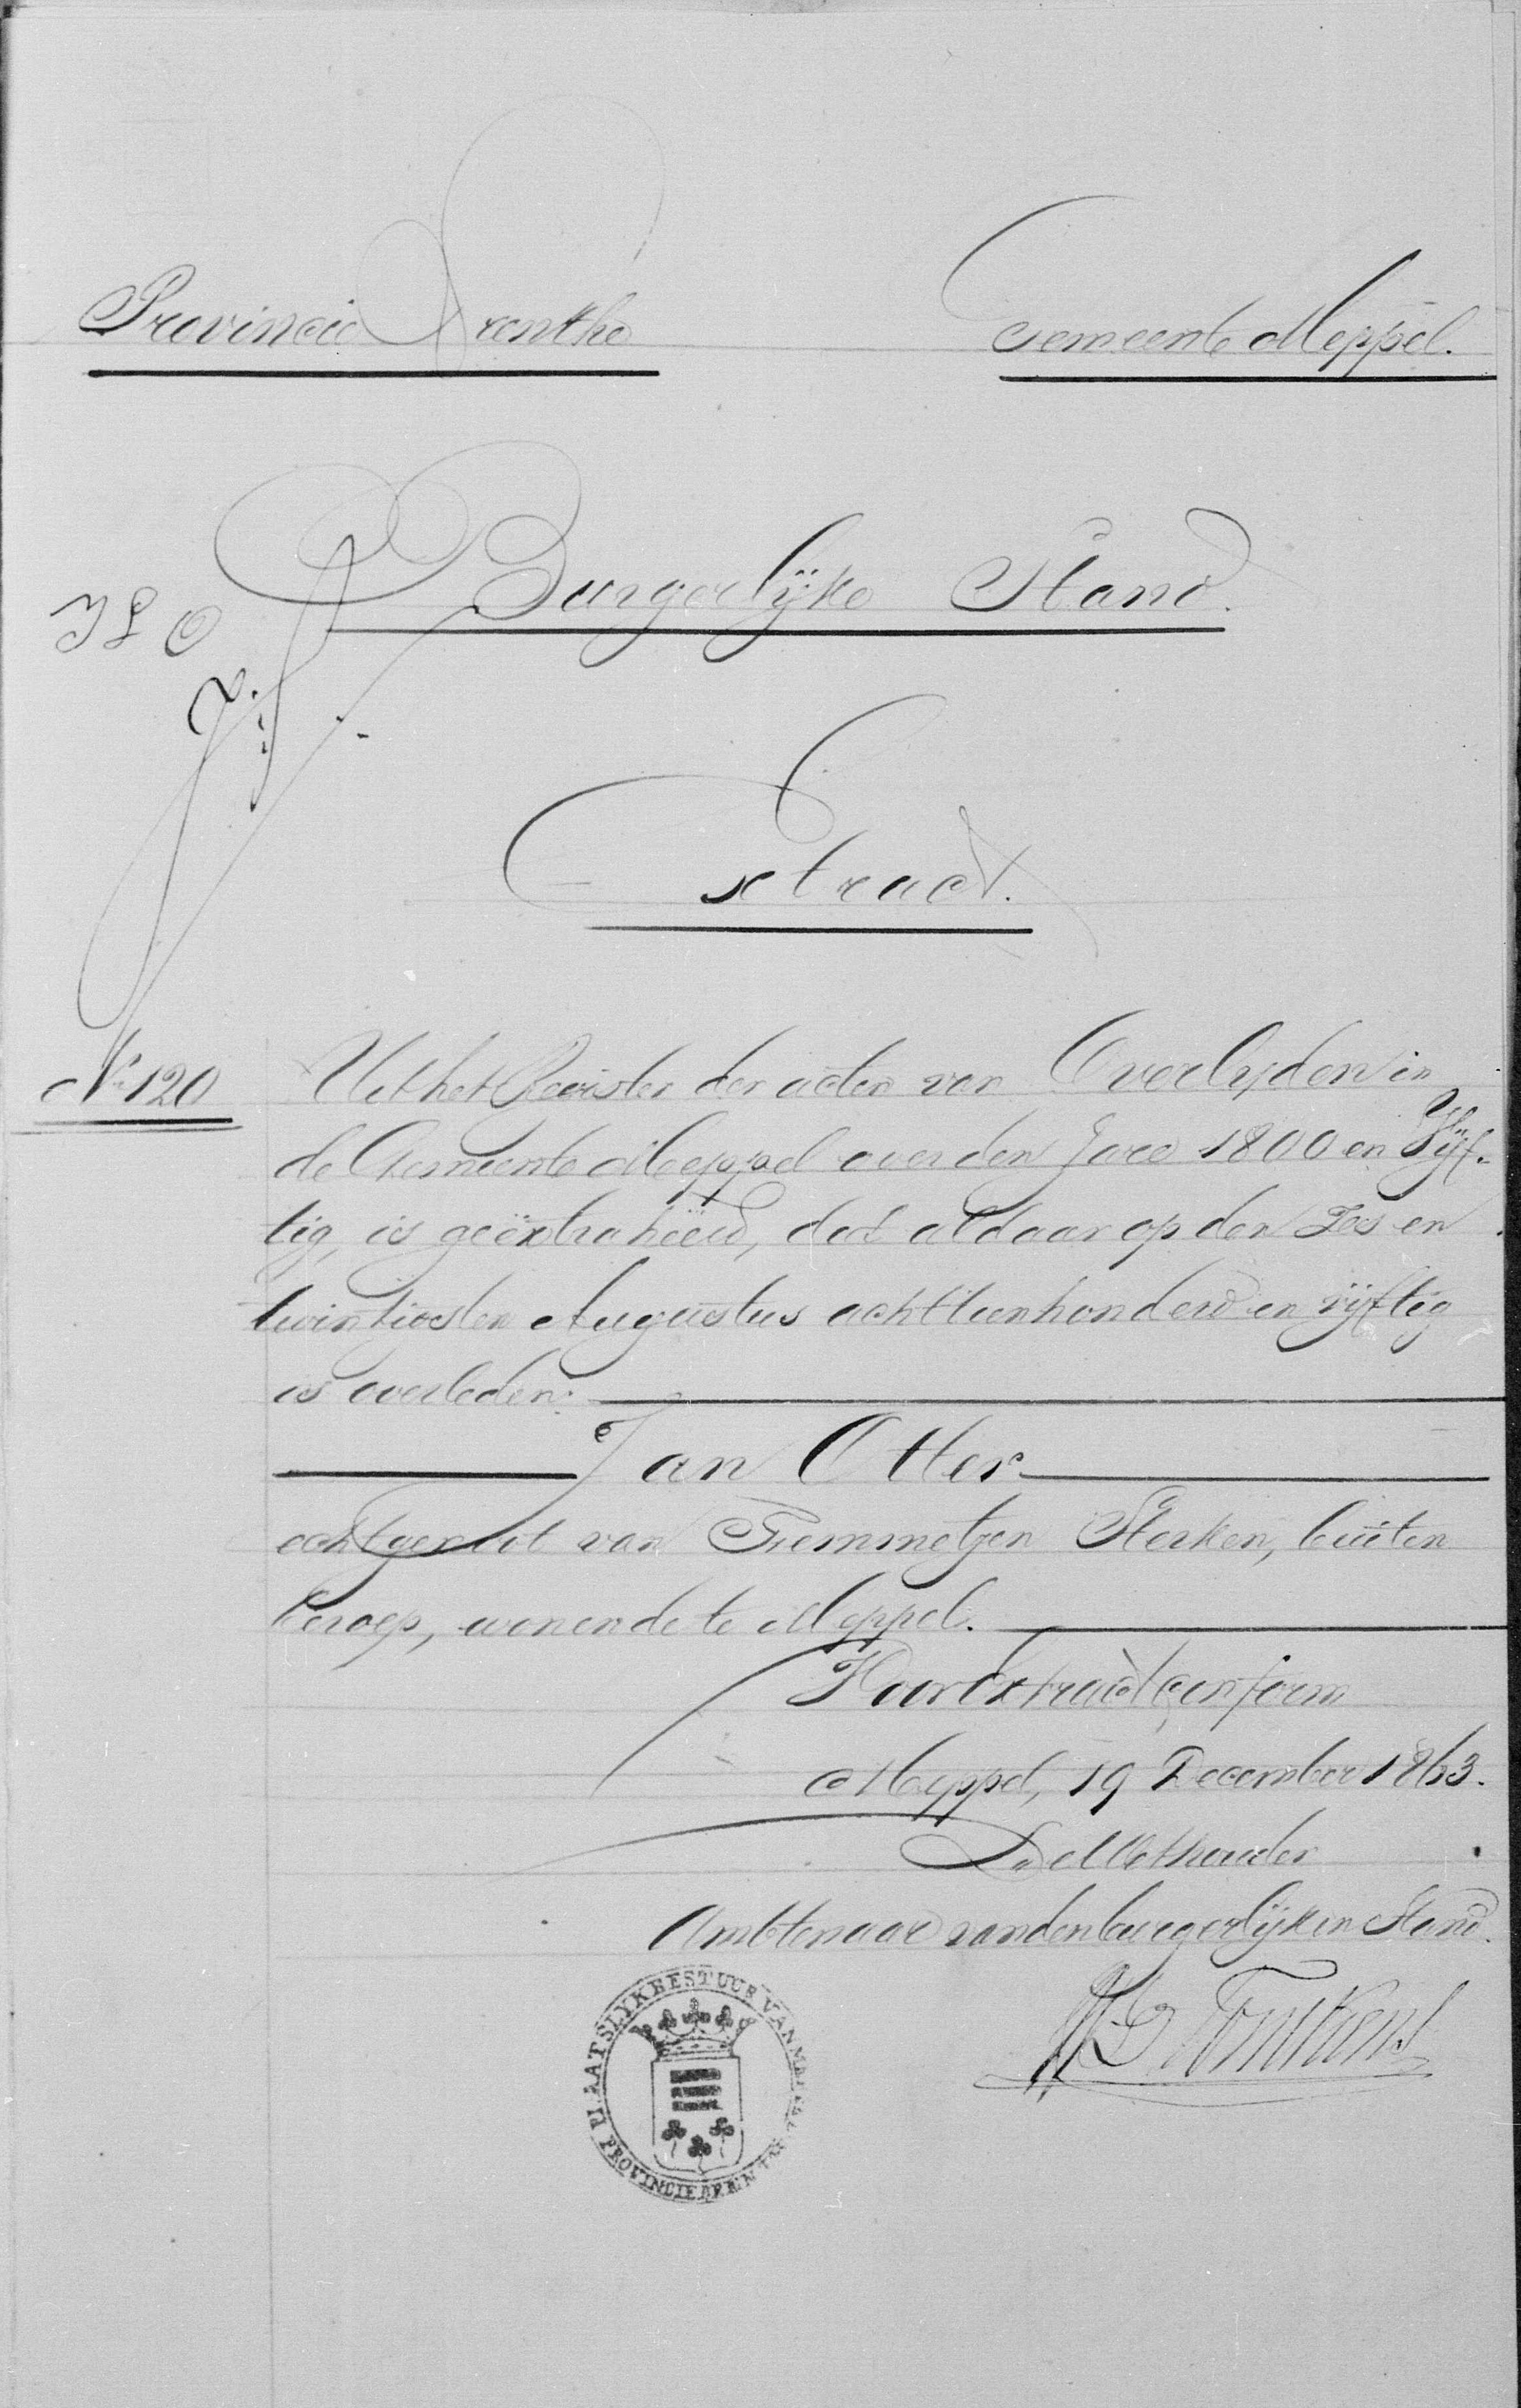 Provincie Drenthe Gemeente Meppel.
Burgerlÿke Stand.
Extract.
No. 120 Uit het Register der acten van Overlyden in
de Gemeente Meppel over den Jare 1800 en Vÿf-
tig, is geëxtraheerd, dat aldaar op den Zes en
twintigsten Augustus achttienhonderd en vÿftig
is overleden:
Jan Otter
echtgenoot van Femmetjen Sterken, buiten
beroep, wonende te Meppel.
Voor Extract conform
Meppel, 19 December 1863.
De Wethouder
Ambtenaar van den burgerlÿken Stand.
PLAATSLYK BESTUUR VAN MEPPEL
PROVINCIE DRENTHE